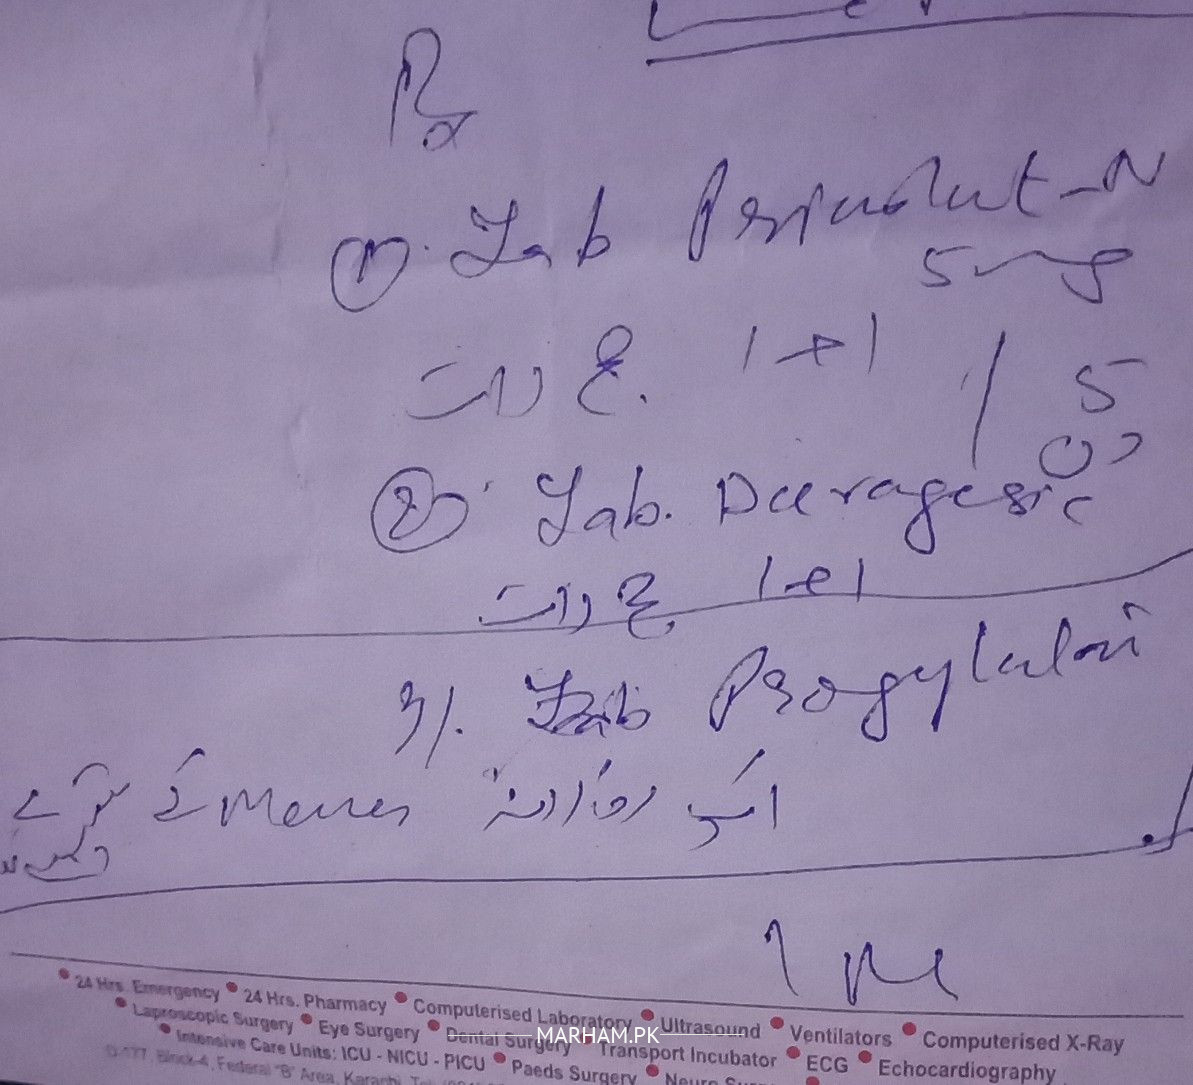 Rx
① Tab Primolut-N
5mg
صبح رات 1+1 / 5
دن
② Tab. Duragesic
صبح رات 1+1
3/. Tab Progyluton
ایک روزانہ Menses کے
1 M
• 24 Hrs. Emergency • 24 Hrs. Pharmacy • Computerised Laboratory • Ultrasound • Ventilators • Computerised X-Ray
• Laproscopic Surgery • Eye Surgery • Dental Surgery Transport Incubator • ECG • Echocardiography
• Intensive Care Units: ICU - NICU - PICU • Paeds Surgery • Neuro
D-177, Block-4, Federal "B" Area, Karachi.
MARHAM.PK